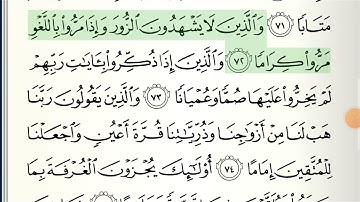 مَتَابًا ﴿٧١﴾ وَالَّذِينَ لَا يَشْهَدُونَ الزُّورَ وَإِذَا مَرُّوا۟ بِاللَّغْوِ
مَرُّوا۟ كِرَامًا ﴿٧٢﴾ وَالَّذِينَ إِذَا ذُكِّرُوا۟ بِـَٔايَاتِ رَبِّهِمْ
لَمْ يَخِرُّوا۟ عَلَيْهَا صُمًّا وَعُمْيَانًا ﴿٧٣﴾ وَالَّذِينَ يَقُولُونَ رَبَّنَا
هَبْ لَنَا مِنْ أَزْوَٰجِنَا وَذُرِّيَّٰتِنَا قُرَّةَ أَعْيُنٍ وَاجْعَلْنَا
لِلْمُتَّقِينَ إِمَامًا ﴿٧٤﴾ أُو۟لَٰٓئِكَ يُجْزَوْنَ الْغُرْفَةَ بِمَا